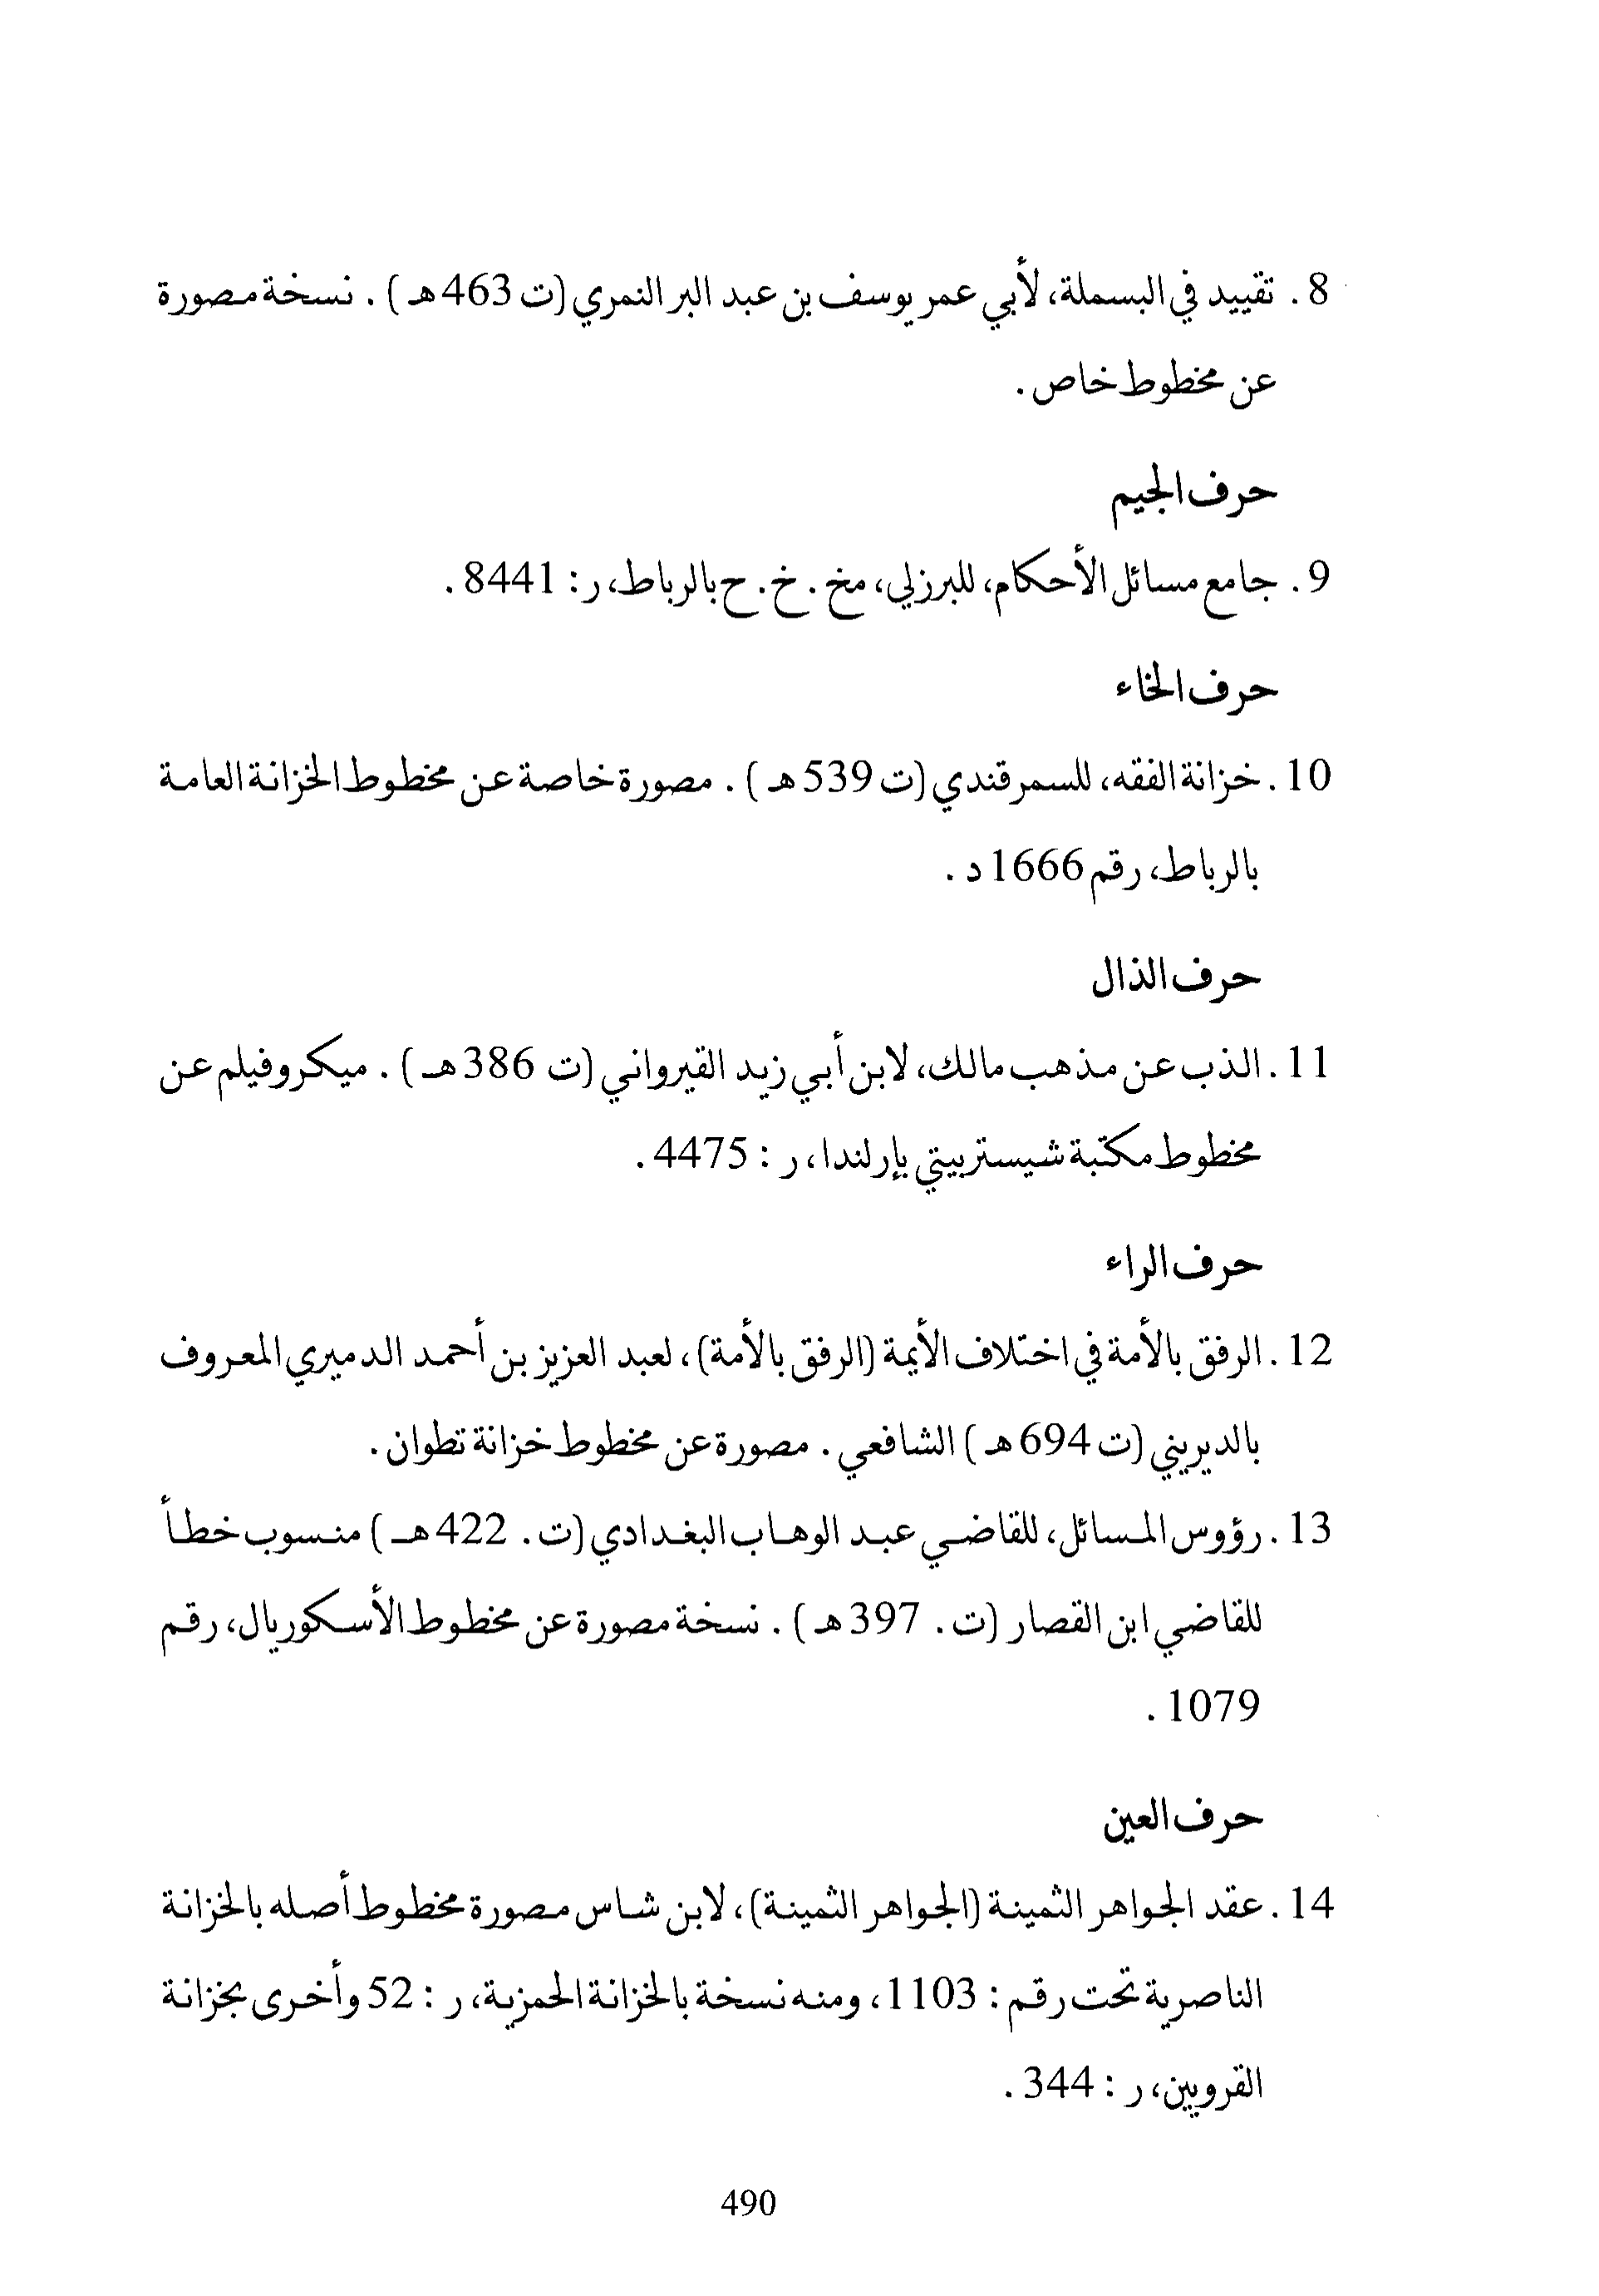 8 . تقييد في البسملة، لأبي عمر يوسف بن عبد البر النمري (ت 463 هـ ) . نسخة مصورة
عن مخطوط خاص .
حرف الجيم
9 . جامع مسائل الأحكام، للبرزلي، مخ . خ . ح بالرباط، ر: 8441 .
حرف الخاء
10 . خزانة الفقه، للسمرقندي (ت 539 هـ ) . مصورة خاصة عن مخطوط الخزانة العامة
بالرباط، رقم 1666 د .
حرف الذال
11 . الذب عن مذهب مالك، لابن أبي زيد القيرواني (ت 386 هـ ) . ميكروفيلم عن
مخطوط مكتبة شيستربيتي بإرلندا، ر : 4475 .
حرف الراء
12 . الرفق بالأمة في اختلاف الأيمة (الرفق بالأمة)، لعبد العزيز بن أحمد الدميري المعروف
بالديريني (ت 694 هـ ) الشافعي . مصورة عن مخطوط خزانة تطوان .
13 . رؤوس المسائل، للقاضي عبد الوهاب البغدادي (ت . 422 هـ ) منسوب خطأ
للقاضي ابن القصار (ت . 397 هـ ) . نسخة مصورة عن مخطوط الأسكوريال، رقم
1079 .
حرف العين
14 . عقد الجواهر الثمينة (الجواهر الثمينة)، لابن شاس مصورة مخطوط أصله بالخزانة
الناصرية تحت رقم : 1103 ، ومنه نسخة بالخزانة الحمزية، ر : 52 وأخرى بخزانة
القرويين، ر : 344 .
490